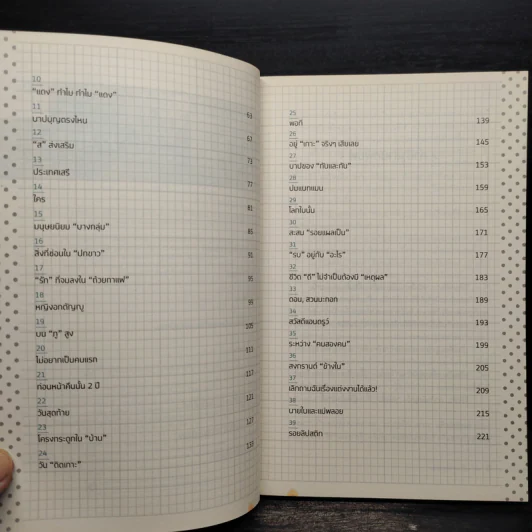 10
"แดง" ทำไม ทำไม "แดง"
63
11
บาปบุญตรงไหน
67
12
"ส" ส่งเสริม
73
13
ประเทศเสรี
77
14
ใคร
81
15
มนุษยนิยม "บางกลุ่ม"
85
16
สิ่งที่ซ่อนใน "ปกขาว"
91
17
"รัก" ที่จมลงใน "ถ้วยกาแฟ"
95
18
หญิงอกตัญญู
99
19
บน "ภู" สูง
105
20
ไม่อยากเป็นคนแรก
111
21
ก่อนหน้าคืนนั้น 2 ปี
117
22
วันสุดท้าย
121
23
โครงกระดูกใน "บ้าน"
127
24
วัน "ติดเกาะ"
133
25
พอที
139
26
อยู่ "เกาะ" จริงๆ เสียเลย
145
27
บาปของ "กันและกัน"
153
28
ปมแทนแมน
159
29
โลกใบนั้น
165
30
สะสม "รอยแผลเป็น"
171
31
"รบ" อยู่กับ "อะไร"
177
32
ชีวิต "ดี" ไม่จำเป็นต้องมี "เหตุผล"
183
33
ตอม, สวนมะกอก
189
34
สวัสดีแอนดรูว์
193
35
ระหว่าง "คนสองคน"
199
36
สงกรานต์ "ข้างใน"
205
37
เลิกถามฉันเรื่องแต่งงานได้แล้ว!
209
38
นายในและแม่พลอย
215
39
รอยลิปสติก
221